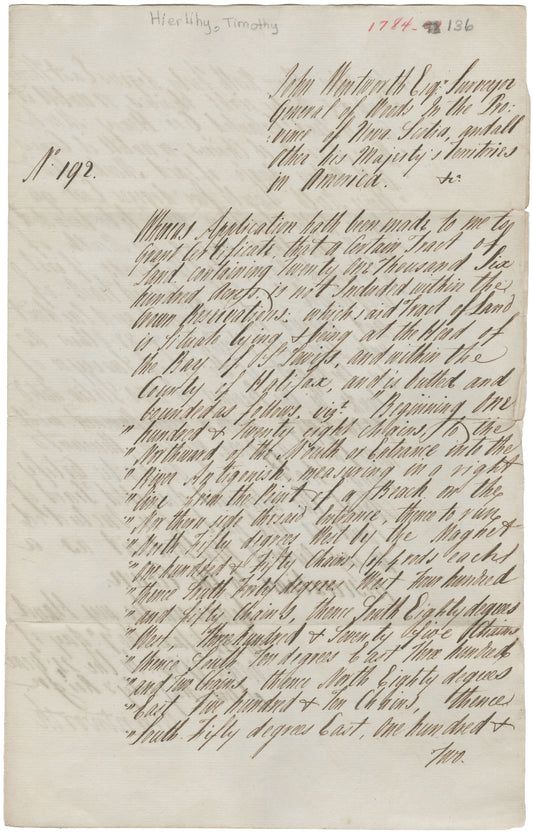 Hierlihy, Timothy
1784 136
John Wentworth Esqr. Surveyor
General of Woods In the Pro-
vince of Nova Scotia, and all
Other his Majesty's Territories
in America. &c.
No. 192.
Whereas Application hath been made to me to
Grant Certificate that a Certain Tract of
Land containing Twenty One Thousand Six
hundred Acres is not Included within the
Crown Reservations. which said Tract of Land
is Situate lying & being at the Head of
the Bay of St. and within the
County of Halifax, and is butted and
bounded as follows, vizt. Beginning One
" hundred & Twenty eight Chains, to the
" Northward of the Mouth or Entrance into the
" River Antigonish, measuring in a right
" line from the Point of a Beach on the
" Northern side the said Entrance, thence to run
" North Fifty degrees West by the Magnet
" One hundred & Fifty Chains, of four rods each
" thence South Forty degrees West Four hundred
" and Fifty Chains, thence South Eighty degrees
" West, hundred & Seventy five Chains
" thence South Ten degrees East Four hundred
" and Two Chains, thence North Eighty degrees
" East Five hundred & Ten Chains, thence
" South Fifty degrees East, One hundred &
Two.